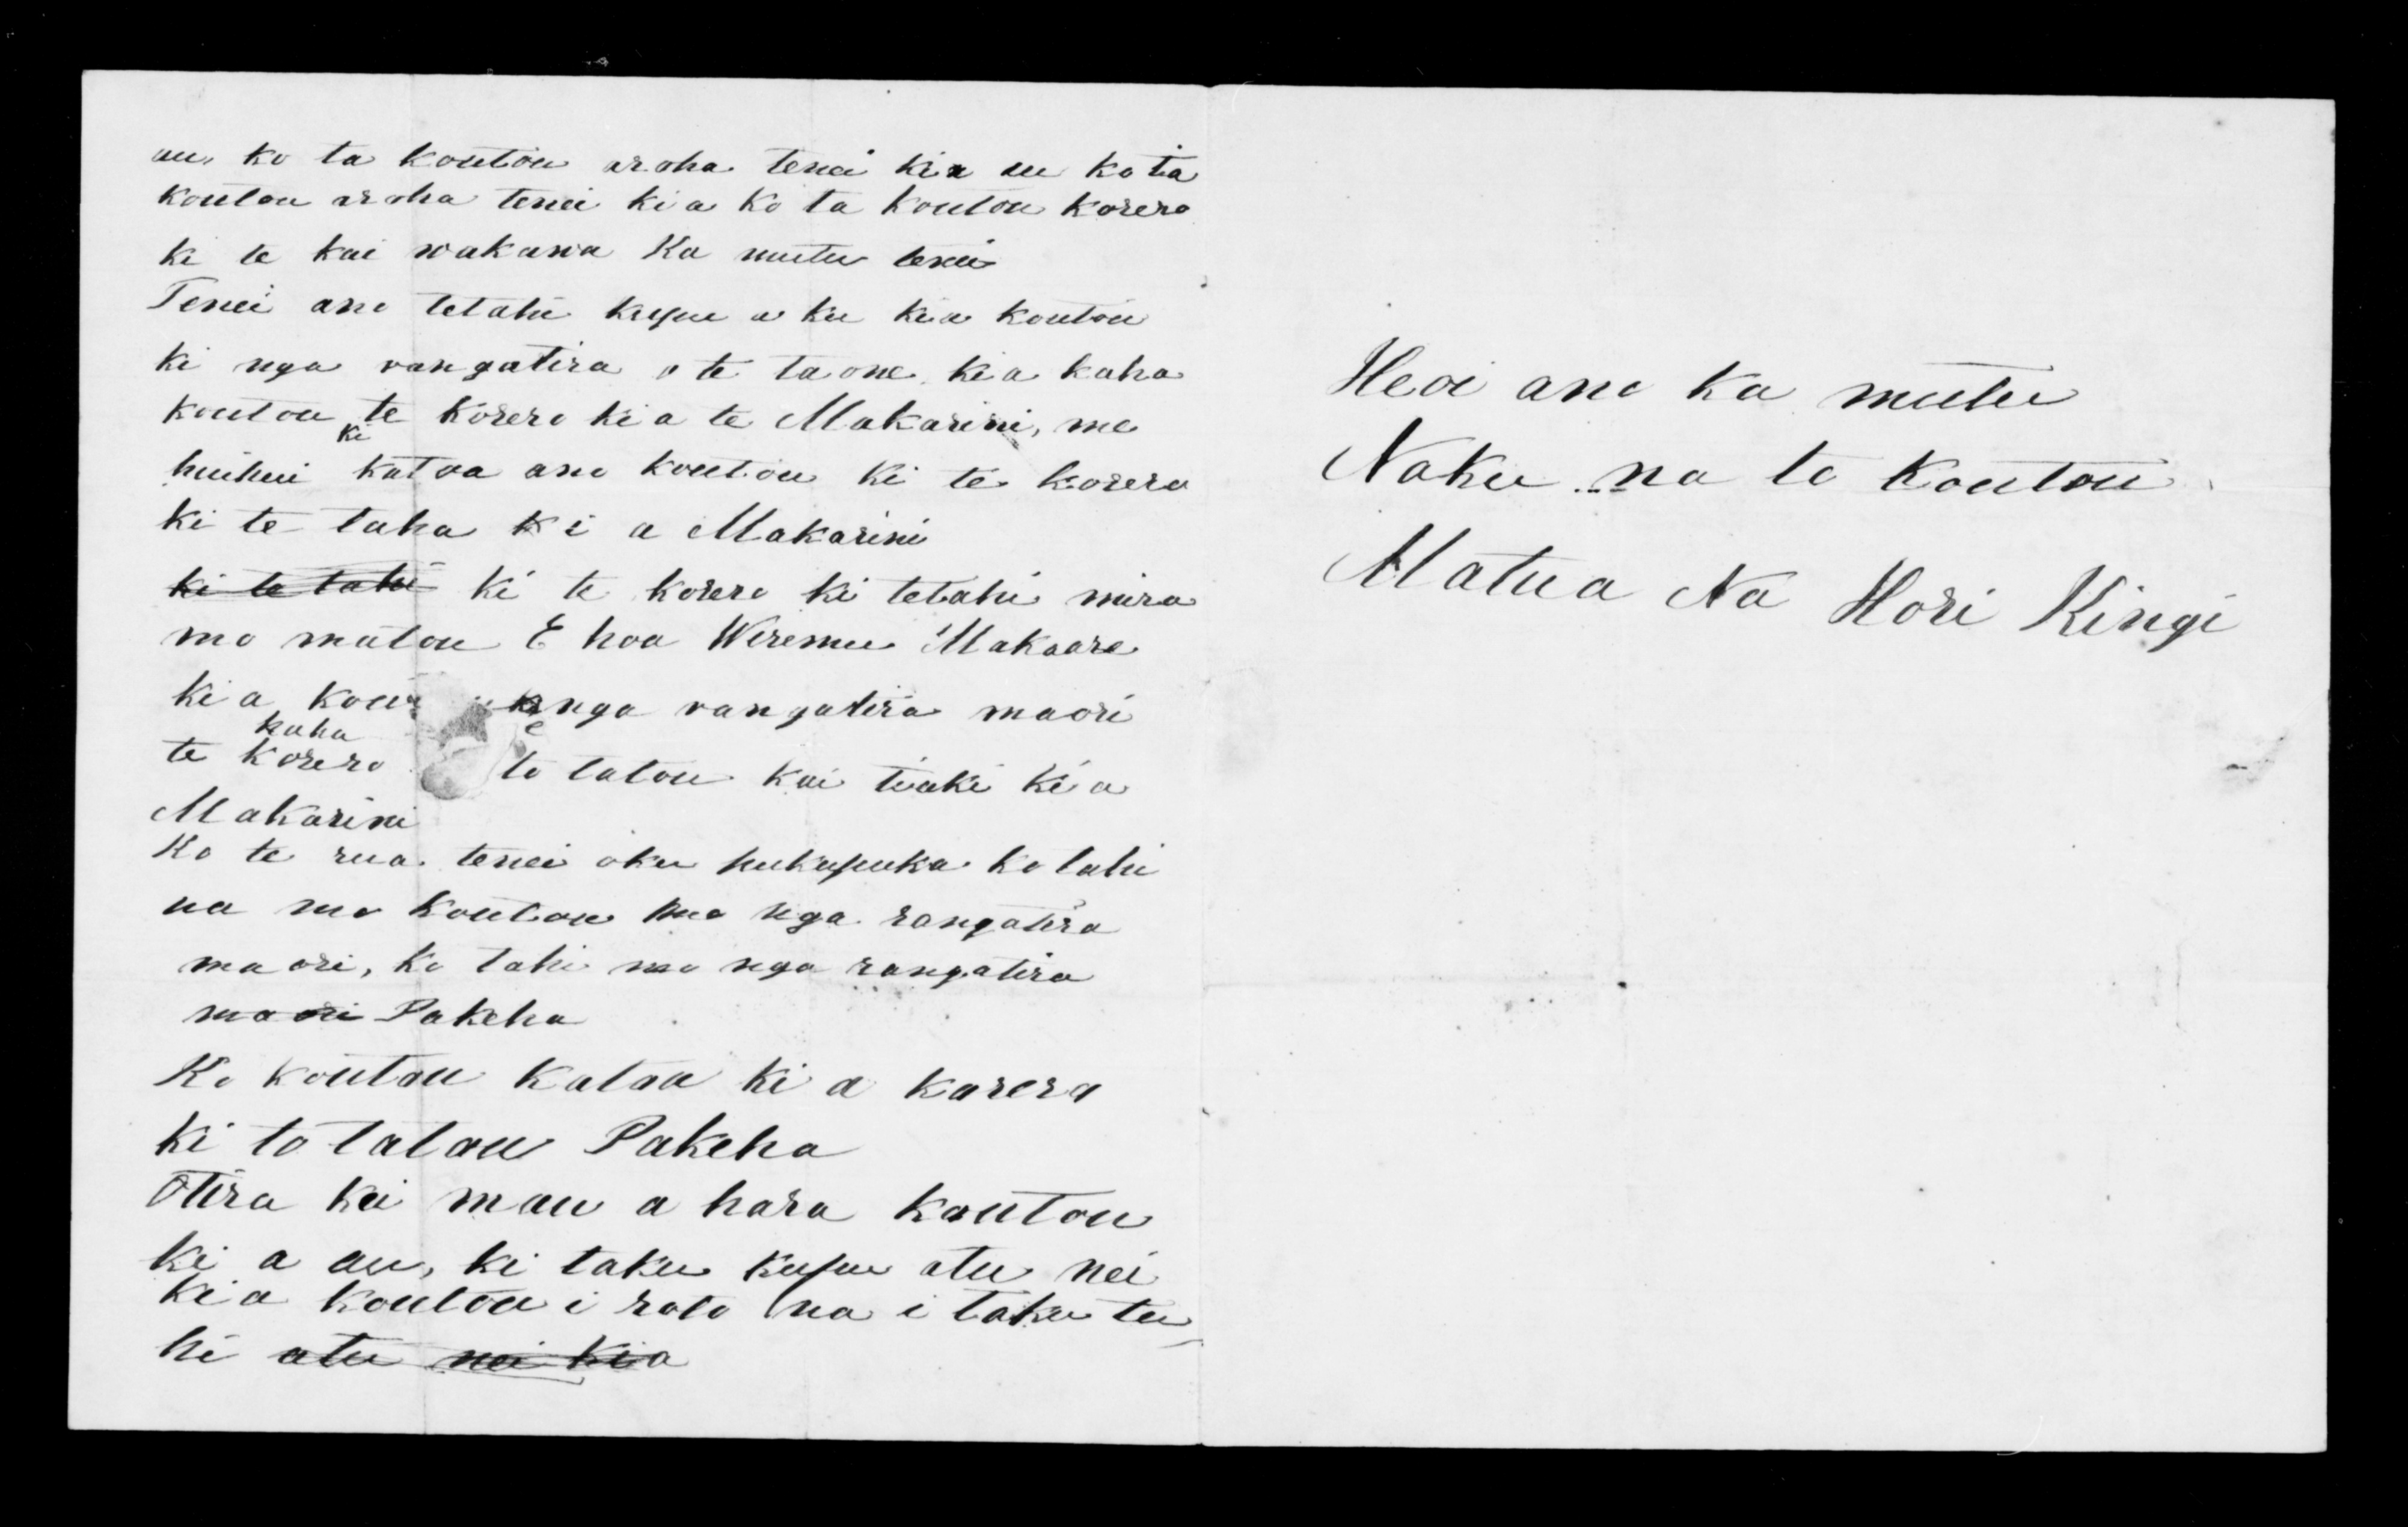 au, ko ta koutou aroha tenei kia au ko ta
koutou aroha tenei kia ko ta koutou korero
ki te kai wakawa Ka mutu tenei
Tenei ano tetahi kupu a ku kia koutou
ki nga rangatira o te taone kia kaha
koutou ki te korero kia te Makarini, me
huihui katoa ano koutou ki te korero
ki te taha ki a Makarini
ki te tahi ki te korero ki tetahi mira
mo matou E hoa Wiremu Makaore
kia nga rangatira maori
kaha
te korero to tatou kai tiaki kia
Makarini
Ko te rua tenei oku pukapuka kotahi
na mo koutou mo nga rangatira
maori, ko tahi mo nga rangatira
maori Pakeha
Ko koutou katoa ki a korero
ki to tatou Pakeha
Otira kei mau a hara koutou
ki a au, ki taku kupu atu nei
kia koutou i roto na i taku tu
hi atu nei kia
Heoi ano ka mutu
Naku na to koutou
Matua Na Hori Kingi